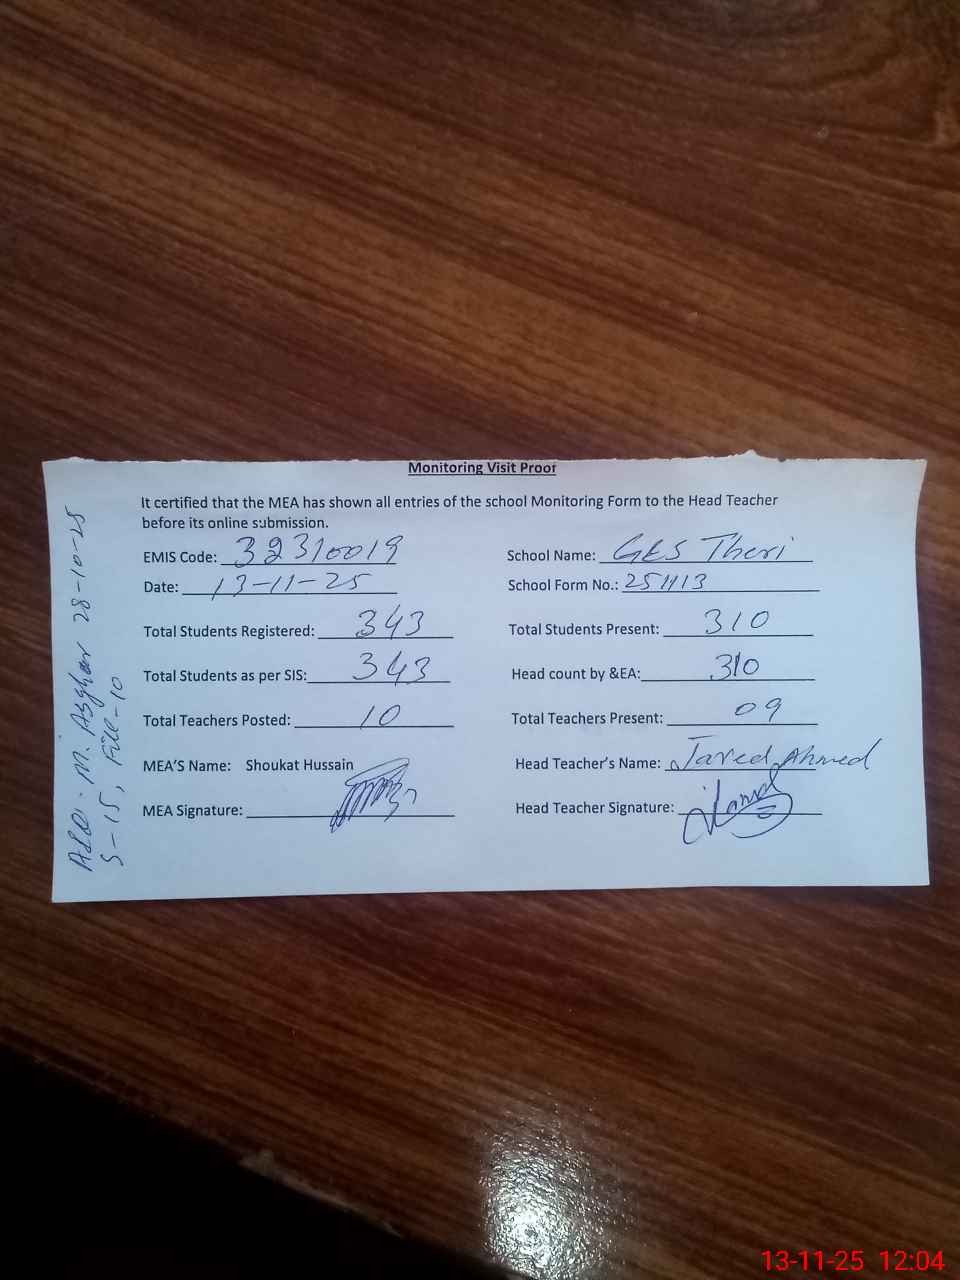 Monitoring Visit Proof
It certified that the MEA has shown all entries of the school Monitoring Form to the Head Teacher
before its online submission.
EMIS Code: 32310019 School Name: GES Theri
Date: 13-11-25 School Form No.: 251113
Total Students Registered: 343 Total Students Present: 310
Total Students as per SIS: 343 Head count by &EA: 310
Total Teachers Posted: 10 Total Teachers Present: 09
MEA'S Name: Shoukat Hussain Head Teacher's Name: Javed Ahmed
MEA Signature: Head Teacher Signature:
M. Asghar 28-10-25
S-15, File-10
13-11-25 12:04